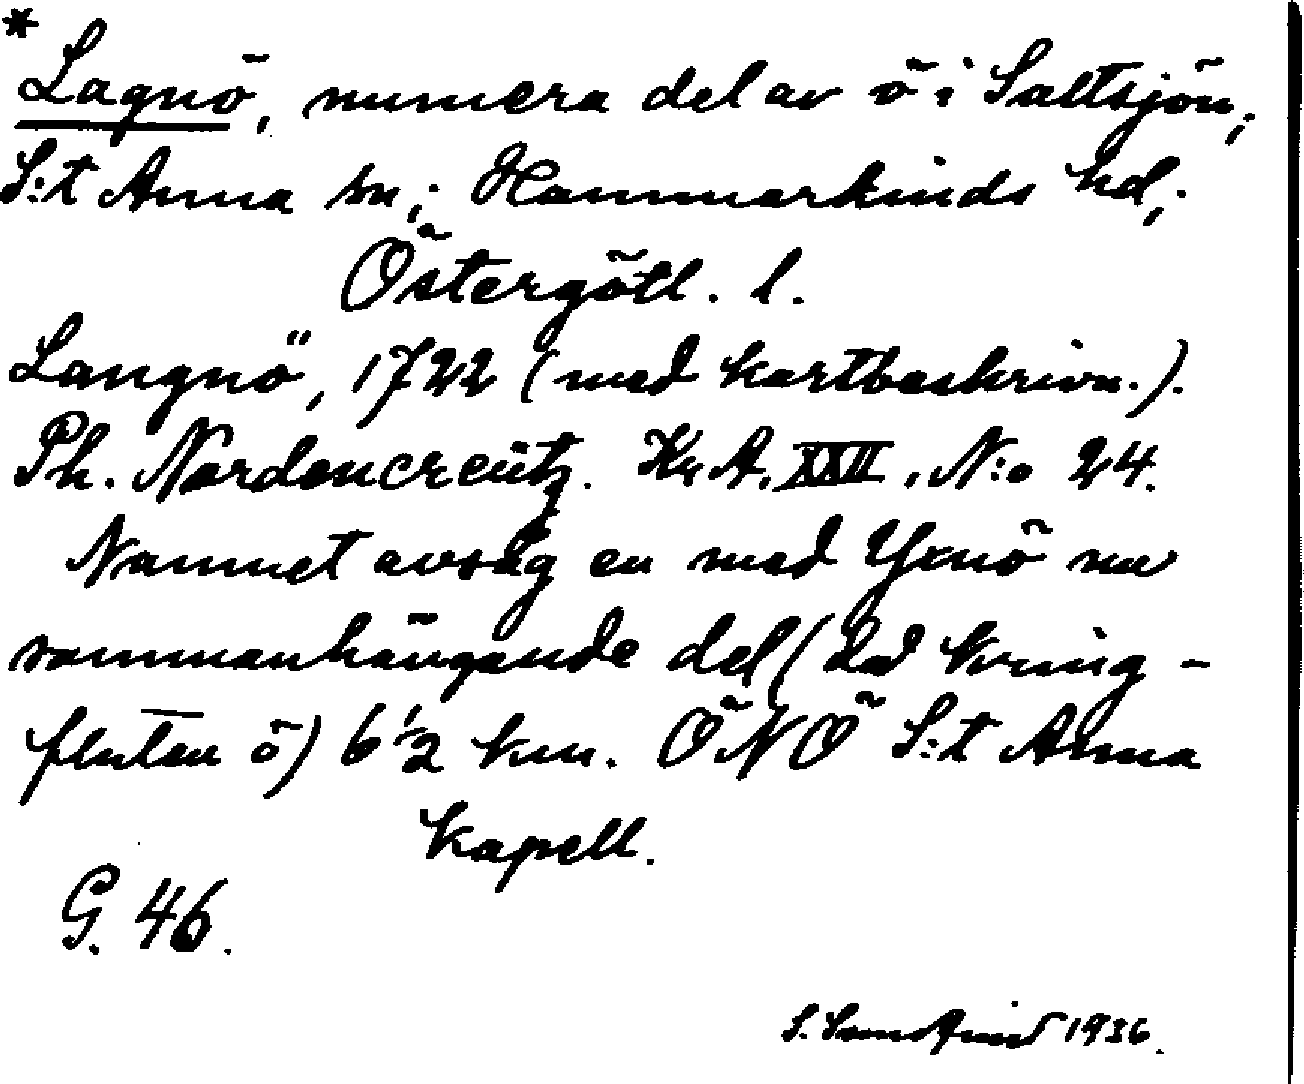 * Lagnö, numera del av ö i Saltsjön,
S:t Anna sn, Hammarkinds hd,
Östergötl. l.
Langnö, 1722 (med kartbeskrivn.).
Ph. Nordencreütz. Kr. A. XXII, N:o 24.
Namnet avsåg en med Yxnö nu
sammanhängande del (då kring-
fluten ö) 6 1/2 km. ÖNÖ S:t Anna
kapell.
G. 46.
S. 1936.